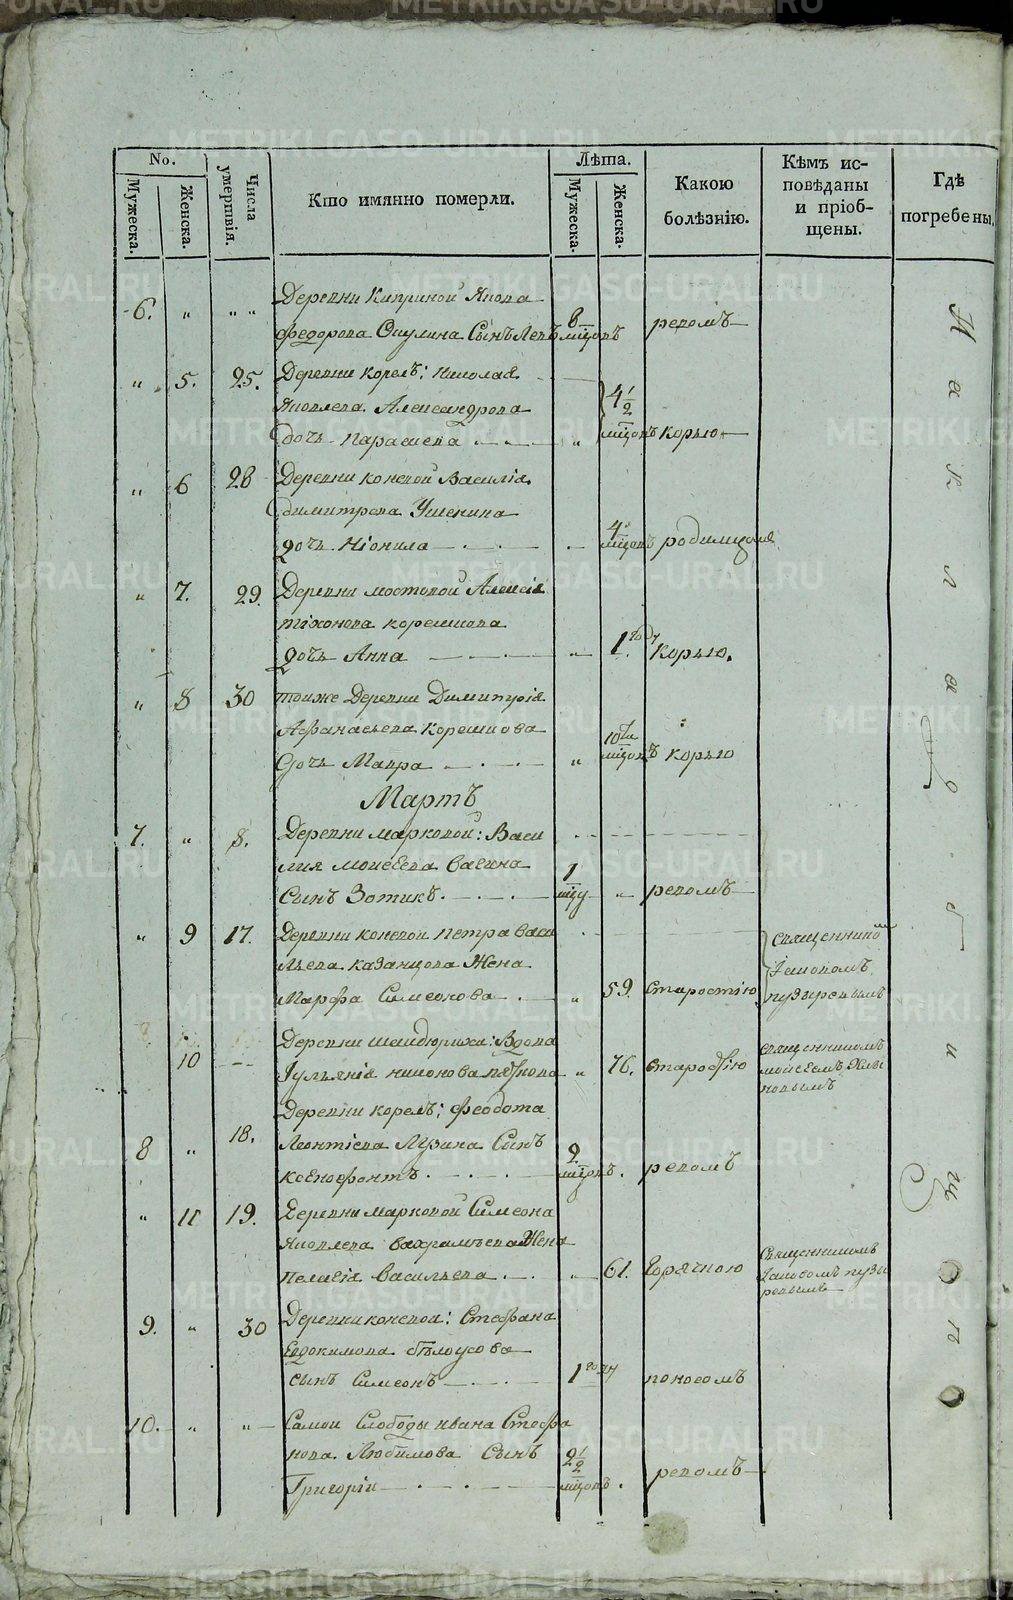 No.
Мужеска.
Женска.
Числа умертвія.
Кто имянно померли.
Лѣта.
Мужеска.
Женска.
Какою болѣзнію.
Кѣмъ исповѣданы и пріобщены.
Гдѣ погребены.
6. " " " Деревни Киприной Якова
Федорова Сынъ Левъ 8 мцовъ ревомъ
" 5. 25. Деревни корел: Николая
Яковлева Александрова 4 1/2
дочь Парасковa " мцовъ корью
" 6 28 Деревни коневой Василія
Димитрева Ушенина 4
дочь Ніонила мцовъ родимцомъ
" 7. 29. Деревни мостовой Алексія
тіхонева корешкова
дочь Анна " 1 годъ Корью.
" 8 30 тоиже Деревни Димитрія
Афанасьева Корешкова 10ти
дочь Мавра " мцовъ корью
Мартъ
7. " 8. Деревни марковой: Васи
лия моисеева вагина 1
Сынъ Зотикъ. мцу " ревомъ
" 9 17. Деревни коневой петра васи священникомъ
льева казанцова Жена Іаковомъ
Марфа Симеонова " 59. старостію пузыревымъ
Деревни шайдурихи: Вдова
10 Іульянія никонова " 76. старостію священникомъ моисеемъ
Деревни корел: Феодота
8 " 18. Леонтіева Лузина Сынъ 2
ксенофонтъ. мцовъ. ревомъ
" 11 19. Деревни марковой Симеона
Яковлева вахрамѣева Жена
Пелагія Васильева " 61. Горячкою священникомъ Іаковомъ пузыревымъ
9. " 30 Деревни коневой: Стефана
Евдокимова бѣлоусова
сынъ Симеонъ 1 году поносомъ
10. " " Самои Слободы ивана Стефа
нова Любимова Сынъ 2 1/2
Григорій мцовъ. ревомъ
На кладбищѣ